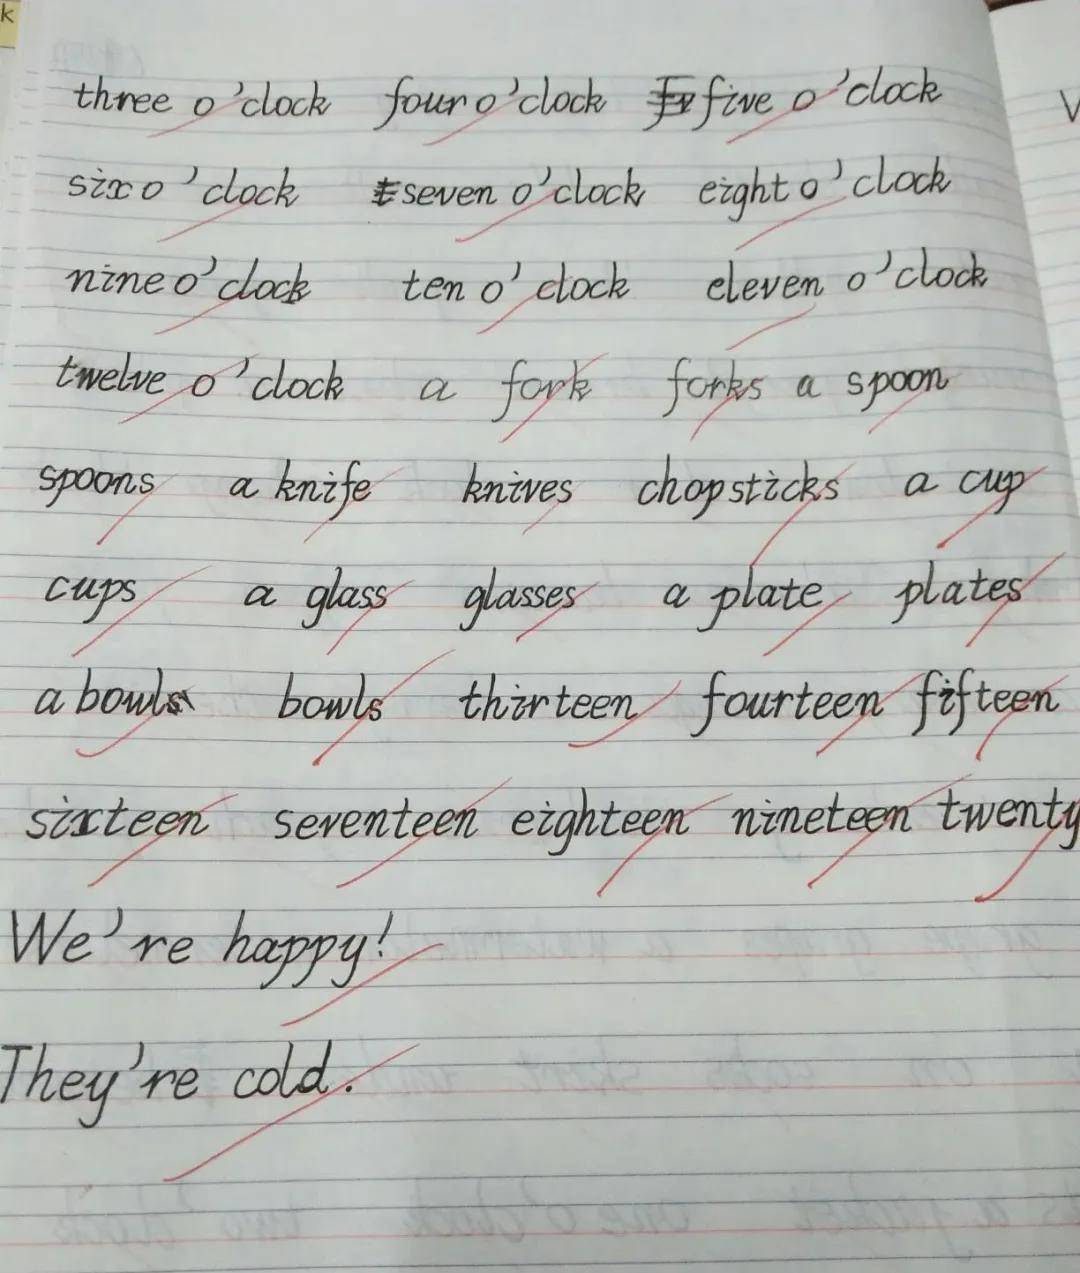 k
three o'clock four o'clock five o'clock
V
six o'clock seven o'clock eight o'clock
nine o'clock ten o'clock eleven o'clock
twelve o'clock a fork forks a spoon
spoons a knife knives chopsticks a cup
cups a glass glasses a plate plates
a bowl bowls thirteen fourteen fifteen
sixteen seventeen eighteen nineteen twenty
We're happy!
They're cold.